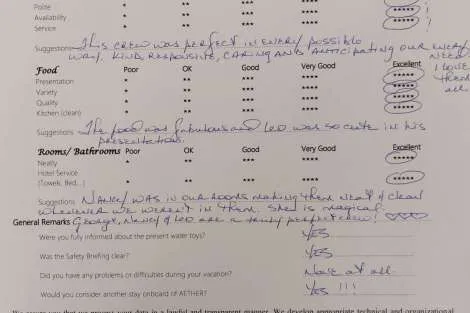 Polite * ** *** **** ***** !
Availability * ** *** **** *****
Service * ** *** **** ***** !
Suggestions THIS CREW WAS PERFECT IN EVERY POSSIBLE
WAY, KIND, RESPONSIVE, CARING AND ANTICIPATING OUR EVERY
NEED
I LOVE
THEM
ALL
Food Poor OK Good Very Good Excellent
Presentation * ** *** **** *****
Variety * ** *** **** *****
Quality * ** *** **** *****
Kitchen (clean) * ** *** **** *****
Suggestions The food was fabulous and Leo was so cute in his
presentation.
Rooms/ Bathrooms Poor OK Good Very Good Excellent
Neatly * ** *** **** *****
Hotel Service
(Towek, Bed...) * ** *** **** *****
Suggestions NANCY WAS IN OUR ROOMS MAKING THEM NEAT & CLEAN
WHENEVER WE WEREN'T IN THEM. SHE IS MAGICAL.
General Remarks GEORGE, NANCY & LEO ARE A PERFECT CREW!
Were you fully informed about the present water toys? YES
Was the Safety Briefing clear? YES
Did you have any problems or difficulties during your vacation? None at all.
Would you consider another stay onboard of AETHER? YES !!!
We assure you that we process your data in a lawful and transparent manner. We develop appropriate technical and organizational